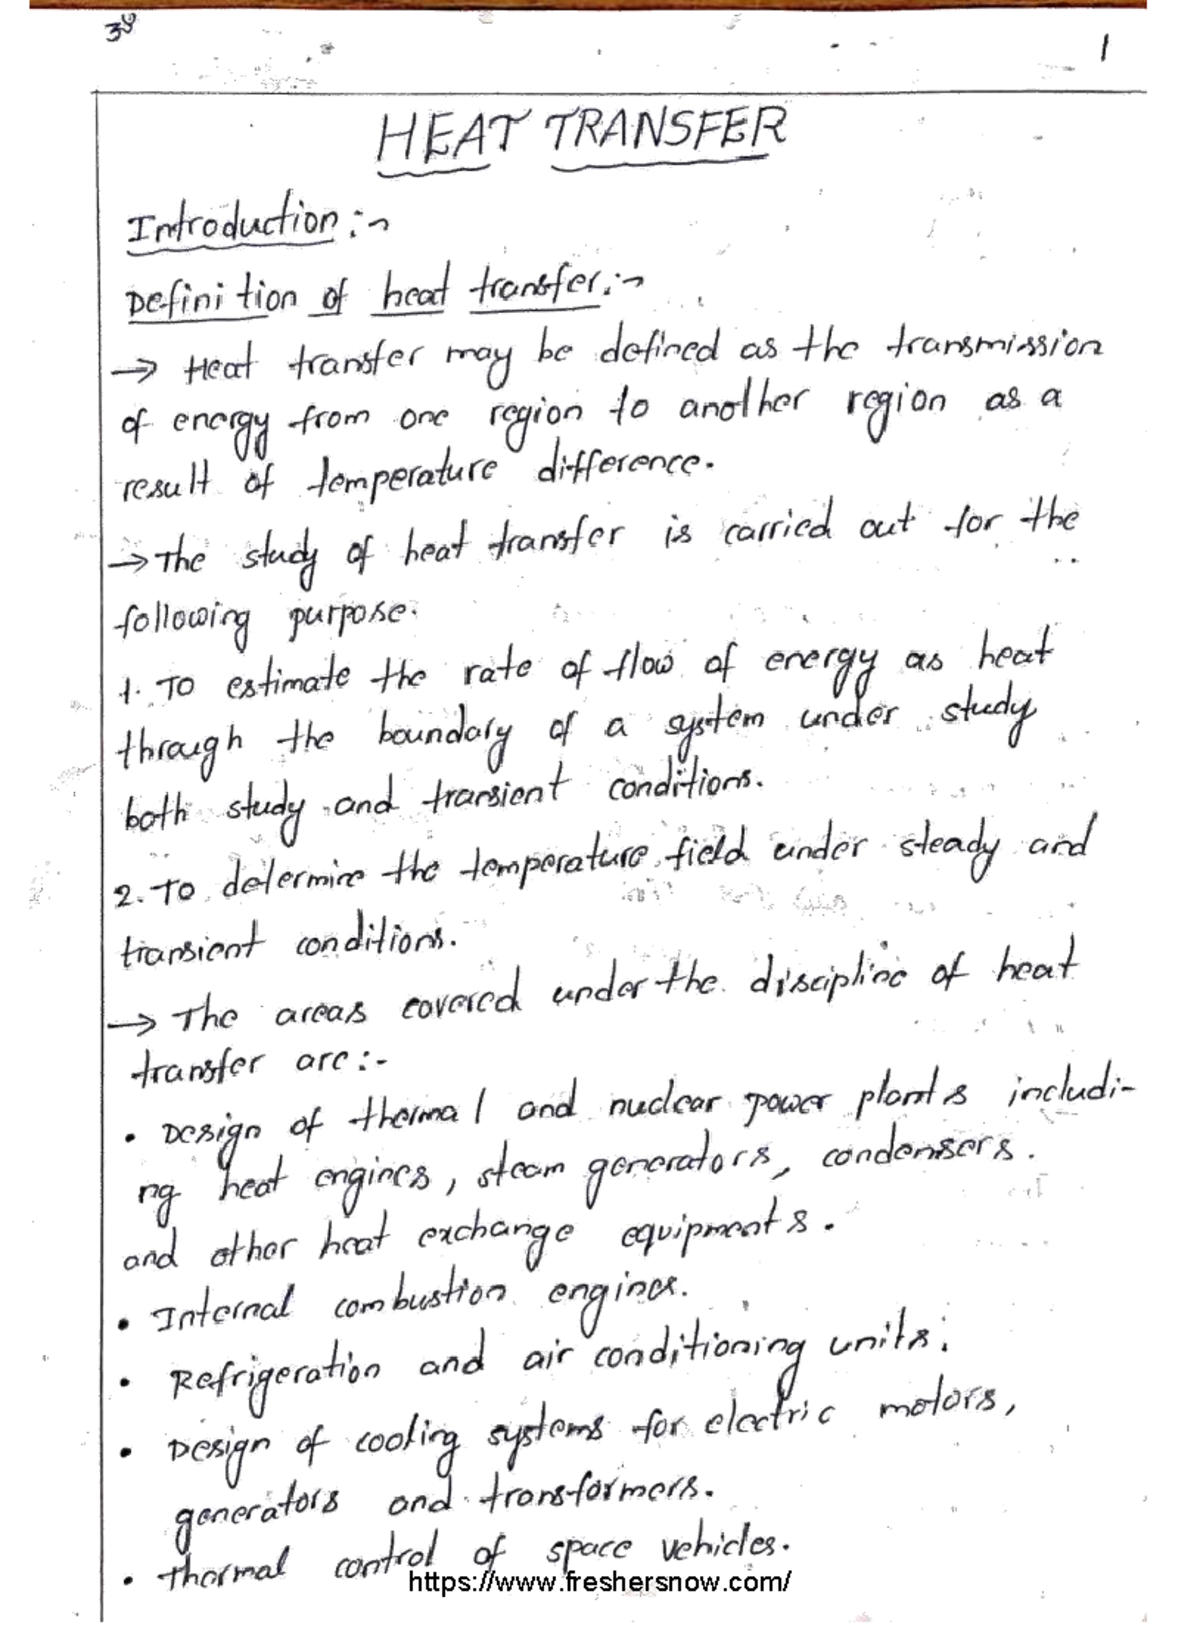 34
1
HEAT TRANSFER
Introduction :-
Definition of heat transfer :-
→ Heat transfer may be defined as the transmission
of energy from one region to another region as a
result of temperature difference.
→ The study of heat transfer is carried out for the
following purpose.
1. To estimate the rate of flow of energy as heat
through the boundary of a system under study
both study and transient conditions.
2. To determine the temperature field under steady and
transient conditions.
→ The areas covered under the discipline of heat
transfer are :-
• Design of thermal and nuclear power plants includi-
ng heat engines, steam generators, condensers.
and other heat exchange equipments.
• Internal combustion engines.
• Refrigeration and air conditioning units.
• Design of cooling systems for electric motors,
generators and transformers.
• Thermal control of space vehicles.
https://www.freshersnow.com/